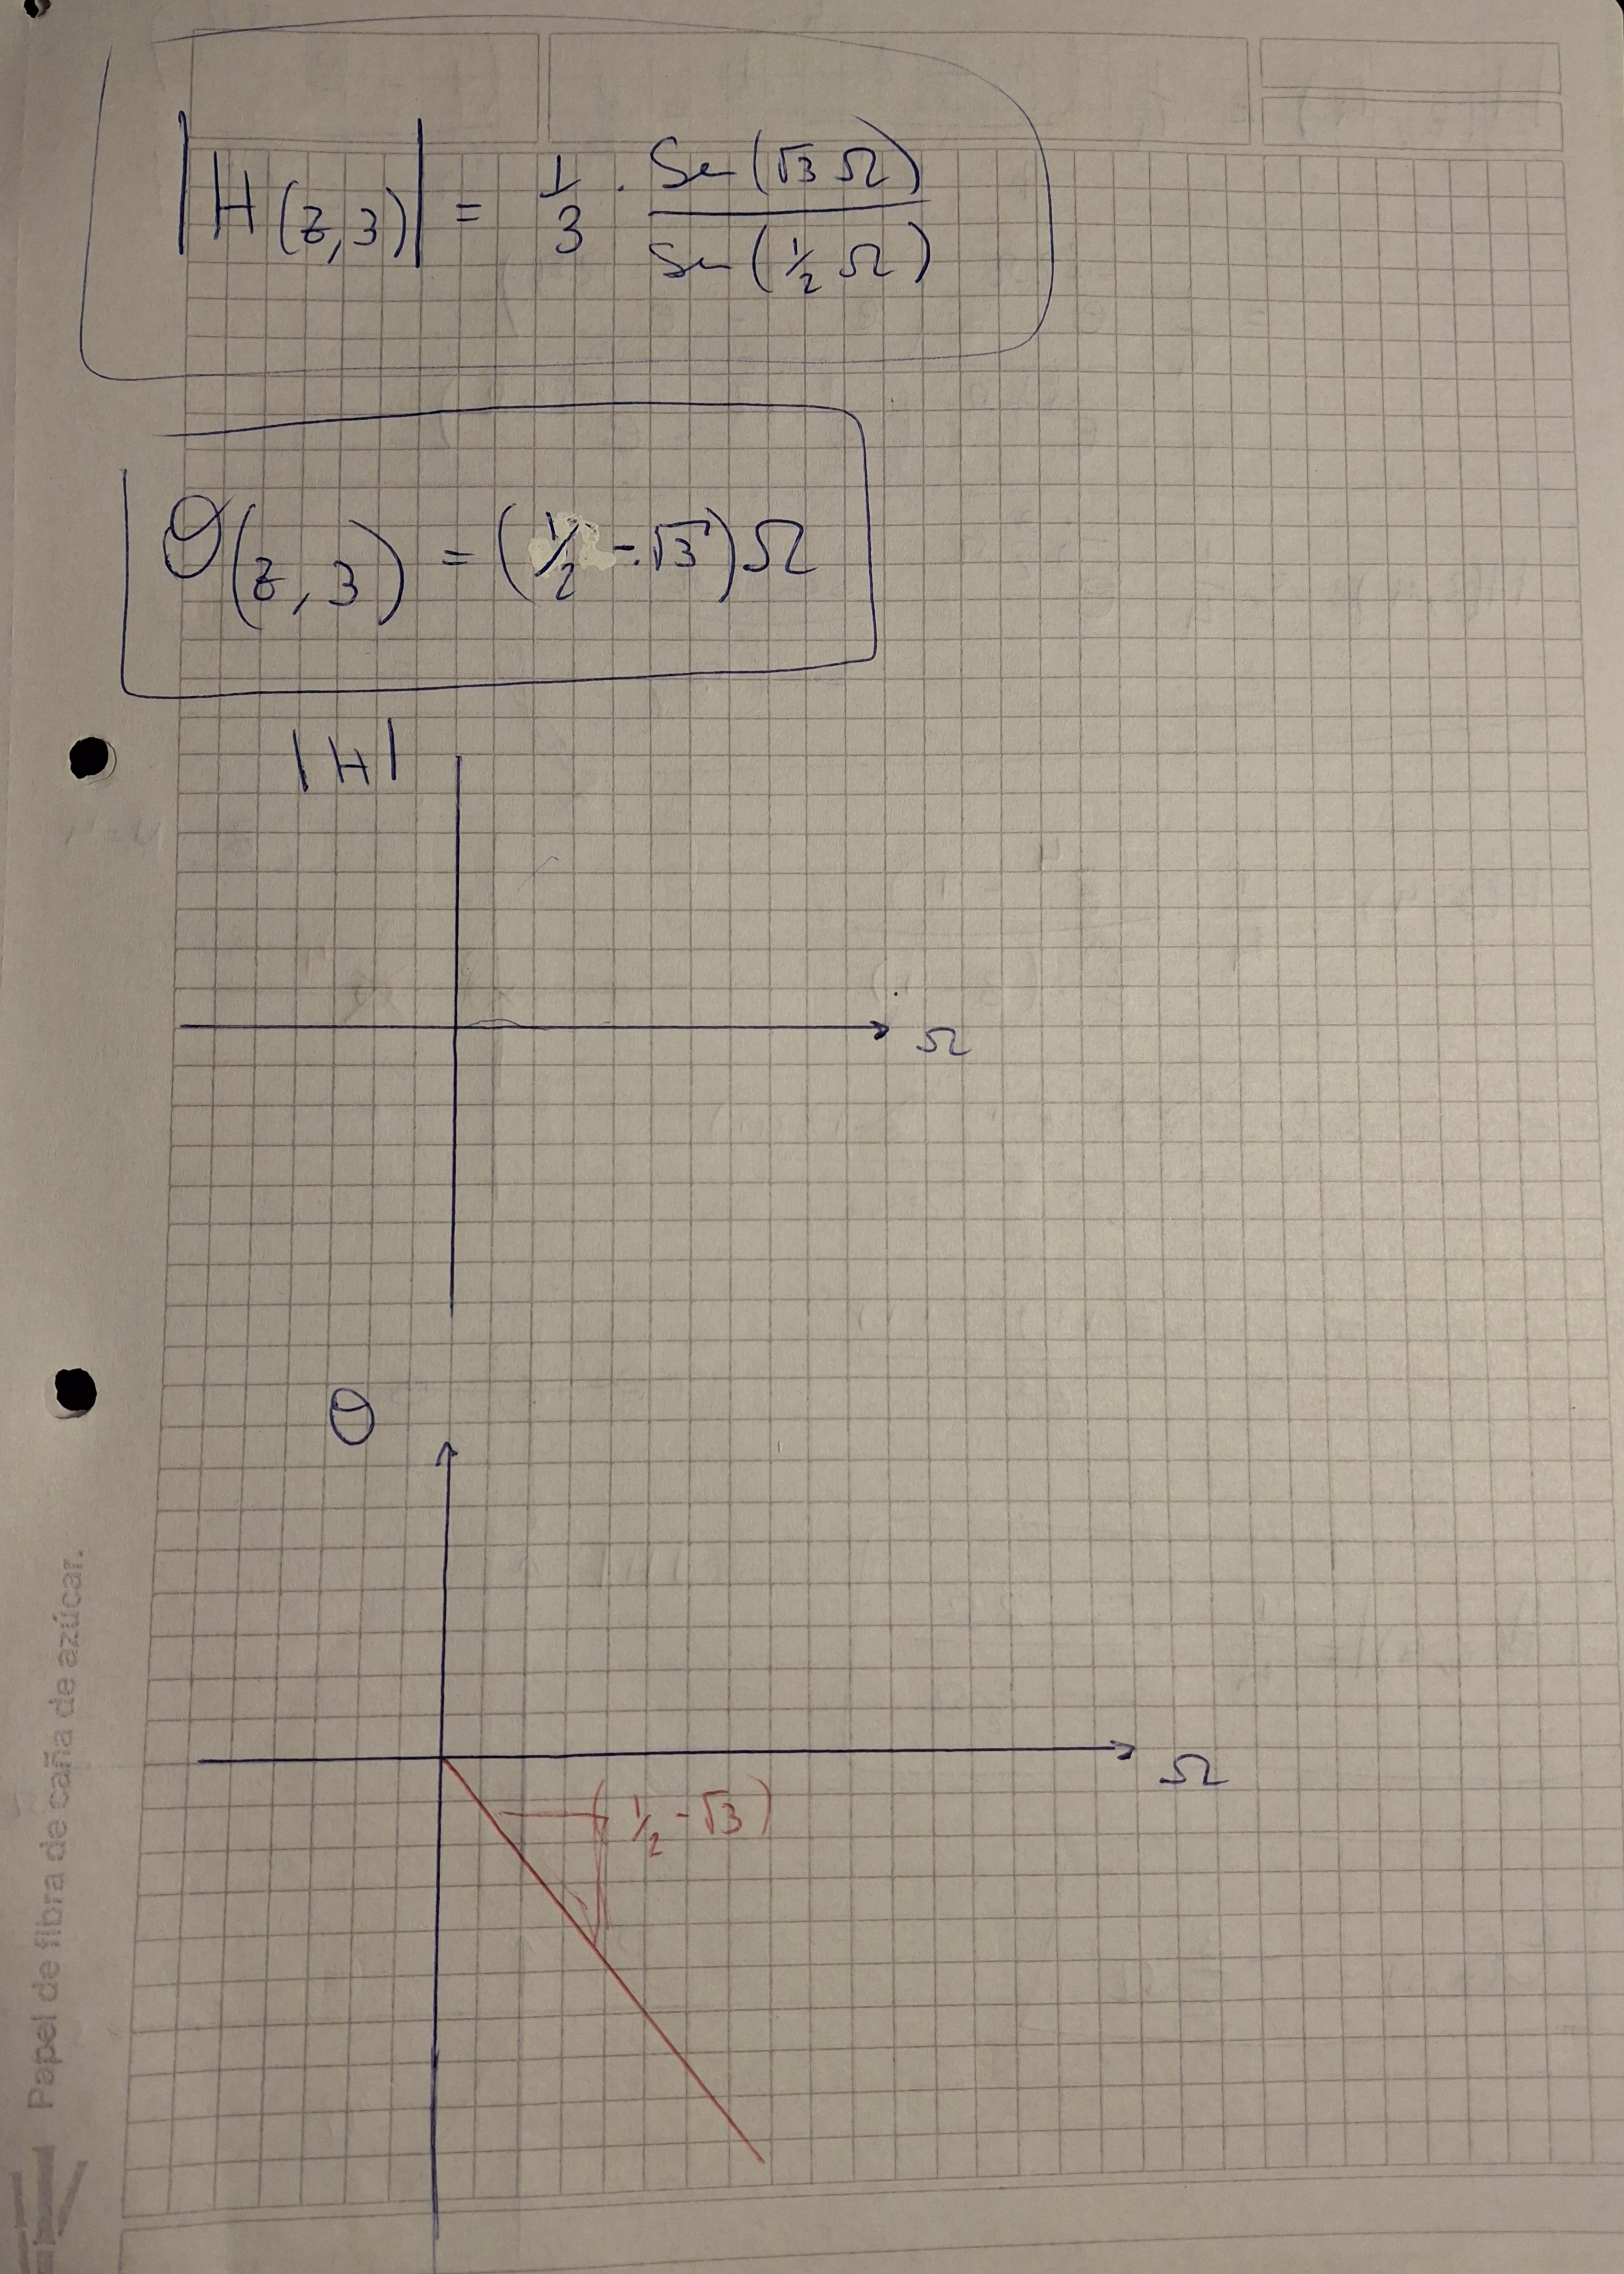 |H(z,3)| = 1/3 · Sen(√3 Ω) / Sen(1/2 Ω)
Θ(z,3) = (1/2 - √3)Ω
|H|
Ω
Θ
Ω
(1/2 - √3)
Papel de fibra de caña de azúcar.